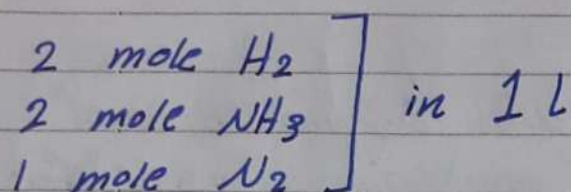 2 mole H2
2 mole NH3
1 mole N2
in 1 L